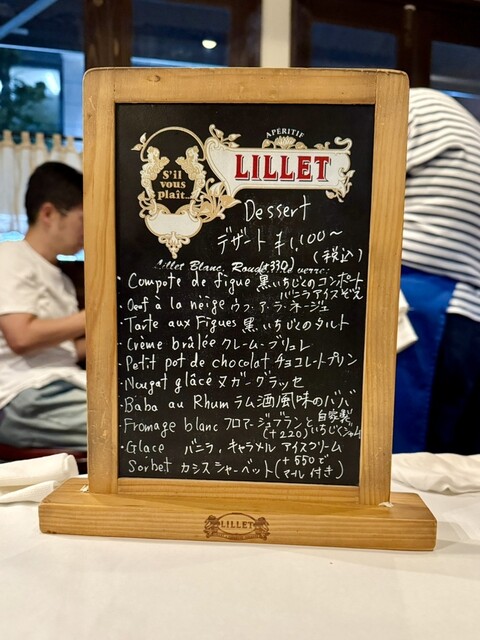 APÉRITIF
LILLET
S'il
vous
plaît...
Dessert
デザート ¥1,100～
(税込)
Lillet Blanc, Rouge
verre:
・Compote de figue 黒いちじくのコンポート
バニラアイス添え
・Oeuf à la neige ウフ・ア・ラ・ネージュ
・Tarte aux Figues 黒いちじくのタルト
・Crème brûlée クレーム・ブリュレ
・Petit pot de chocolat チョコレートプリン
・Nougat glâcé ヌガーグラッセ
・Baba au Rhum ラム酒風味のババ
・Fromage blanc フロマージュブランと自家製
(+220) いちじくジャム
・Glace バニラ, キャラメル アイスクリーム
Sorbet カシスシャーベット (+550で
マール付き)
LILLET